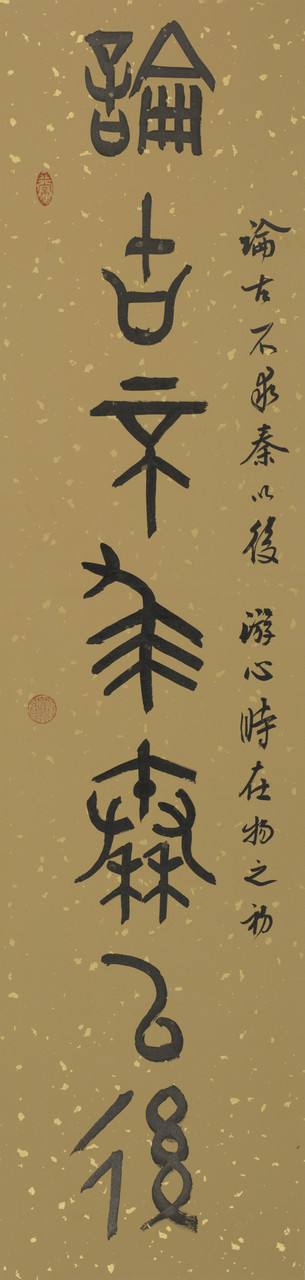 論古不求秦以後 游心時在物之初
論古不求秦以後